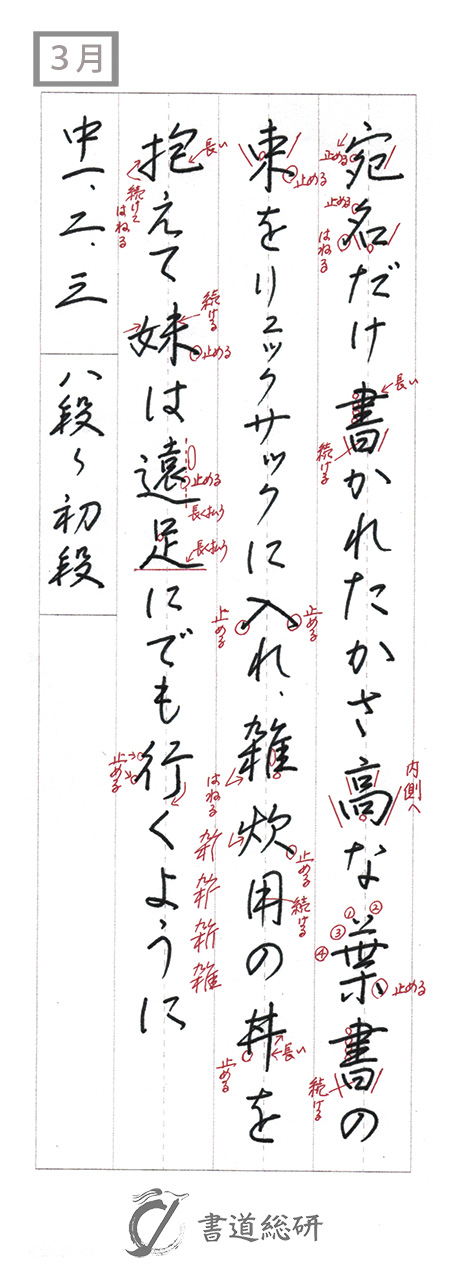 3月
宛名だけ書かれたかさ高な葉書の
束をリュックサックに入れ、雑炊用の丼を
抱えて妹は遠足にでも行くように
中一、二、三 八段〜初段
止める
止める
はねる
長い
続ける
内側へ
① ② ③ ④
止める
続ける
止める
止める
止める
はねる
止める
続ける
長い
止める
長い
続けてはねる
続ける
止める
止める
長く払う
長く払う
止める
雑
書道総研